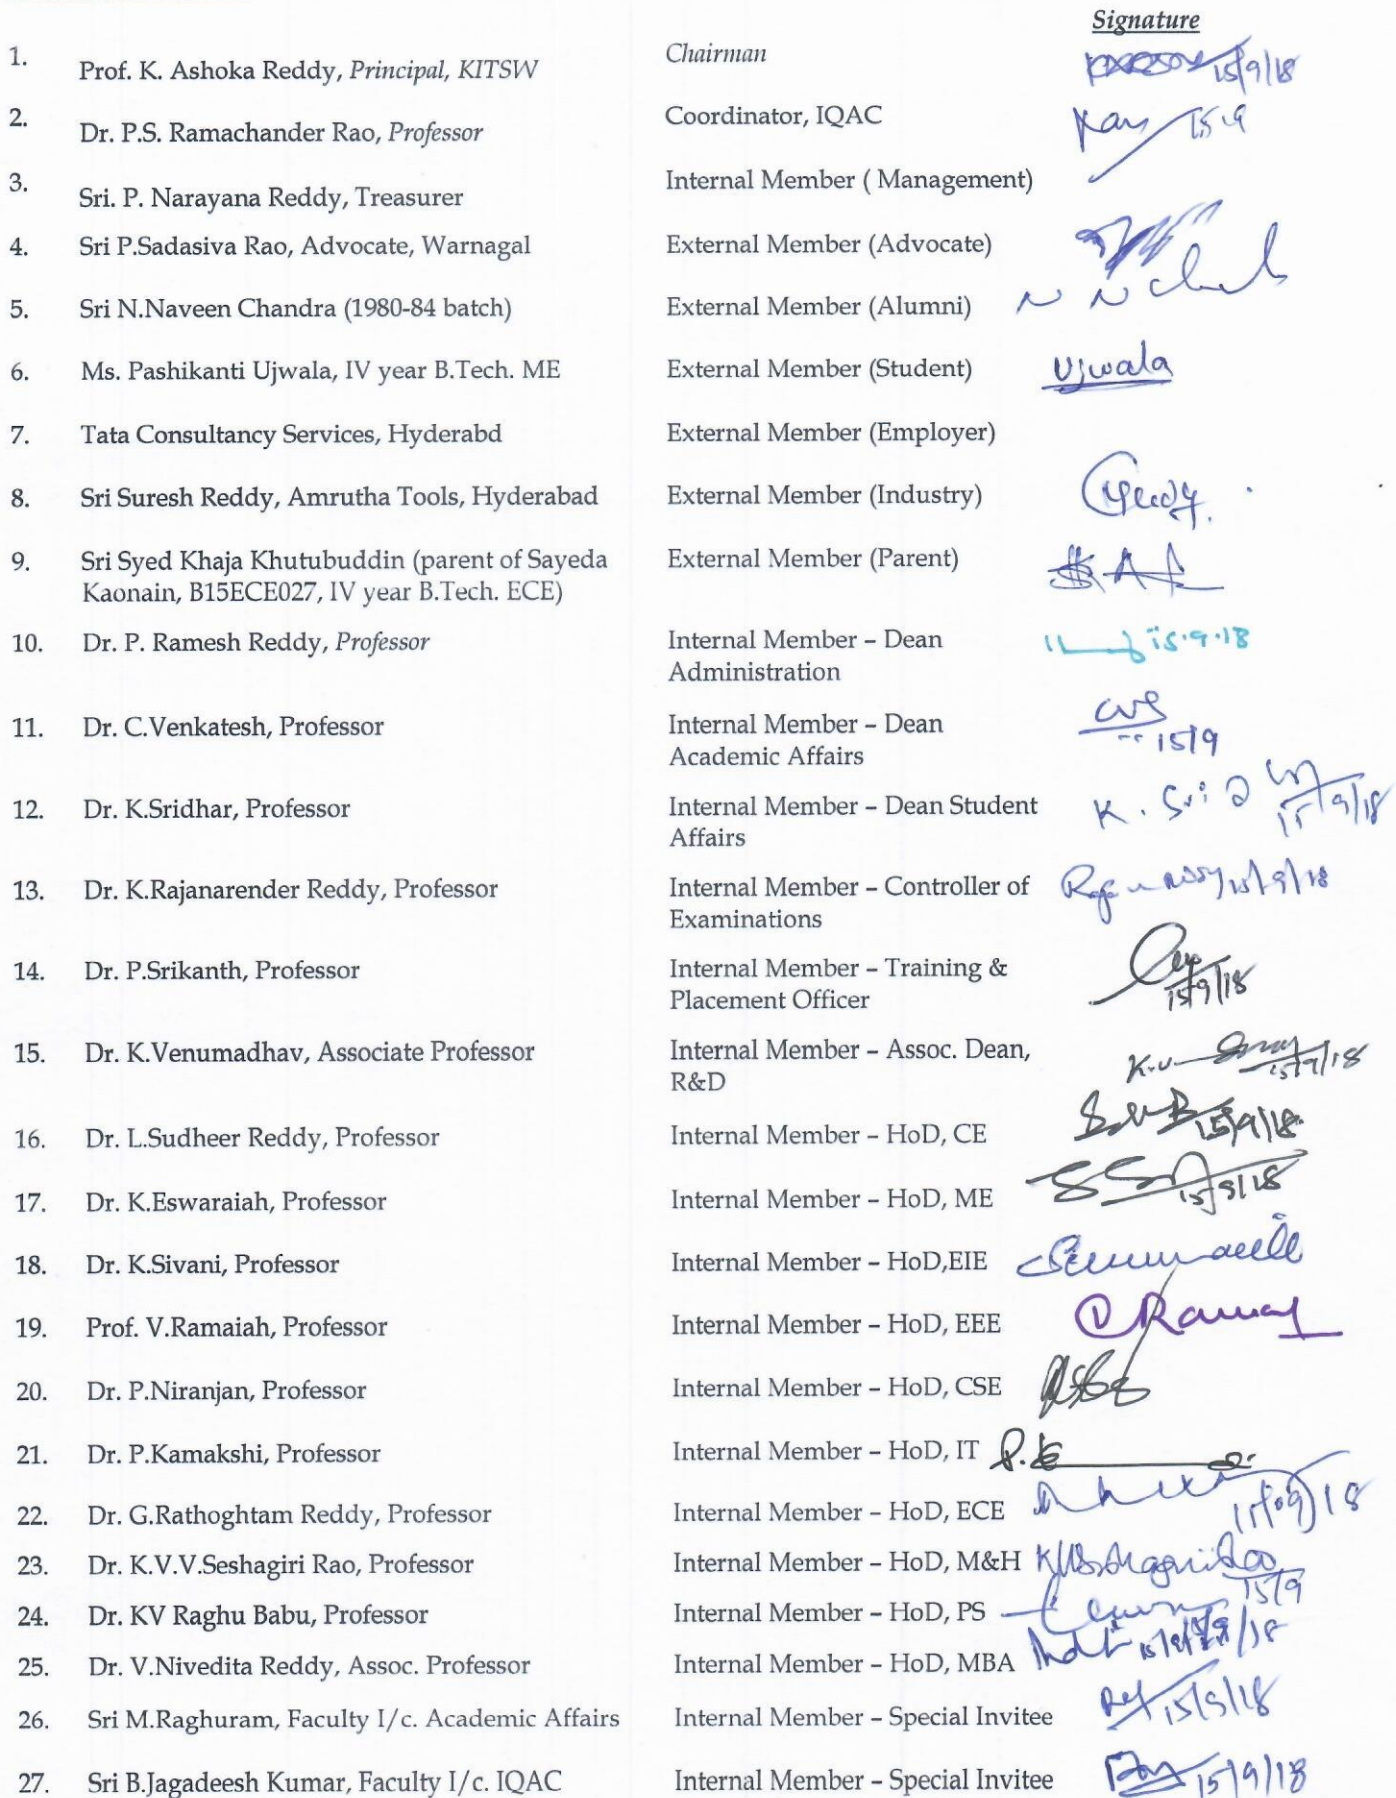 Signature
1. Prof. K. Ashoka Reddy, Principal, KITSW Chairman 15/9/18
2. Dr. P.S. Ramachander Rao, Professor Coordinator, IQAC 15.9
3. Sri. P. Narayana Reddy, Treasurer Internal Member ( Management)
4. Sri P.Sadasiva Rao, Advocate, Warnagal External Member (Advocate)
5. Sri N.Naveen Chandra (1980-84 batch) External Member (Alumni)
6. Ms. Pashikanti Ujwala, IV year B.Tech. ME External Member (Student) Ujwala
7. Tata Consultancy Services, Hyderabd External Member (Employer)
8. Sri Suresh Reddy, Amrutha Tools, Hyderabad External Member (Industry)
9. Sri Syed Khaja Khutubuddin (parent of Sayeda External Member (Parent)
Kaonain, B15ECE027, IV year B.Tech. ECE)
10. Dr. P. Ramesh Reddy, Professor Internal Member – Dean 15.9.18
Administration
11. Dr. C.Venkatesh, Professor Internal Member – Dean
Academic Affairs 15/9
12. Dr. K.Sridhar, Professor Internal Member – Dean Student 15/9/18
Affairs
13. Dr. K.Rajanarender Reddy, Professor Internal Member – Controller of 15/9/18
Examinations
14. Dr. P.Srikanth, Professor Internal Member – Training & 15/9/18
Placement Officer
15. Dr. K.Venumadhav, Associate Professor Internal Member – Assoc. Dean, 15/9/18
R&D
16. Dr. L.Sudheer Reddy, Professor Internal Member – HoD, CE 15/9/18
17. Dr. K.Eswaraiah, Professor Internal Member – HoD, ME 15/9/18
18. Dr. K.Sivani, Professor Internal Member – HoD,EIE
19. Prof. V.Ramaiah, Professor Internal Member – HoD, EEE
20. Dr. P.Niranjan, Professor Internal Member – HoD, CSE
21. Dr. P.Kamakshi, Professor Internal Member – HoD, IT
22. Dr. G.Rathoghtam Reddy, Professor Internal Member – HoD, ECE 15/09/18
23. Dr. K.V.V.Seshagiri Rao, Professor Internal Member – HoD, M&H 15/9
24. Dr. KV Raghu Babu, Professor Internal Member – HoD, PS
25. Dr. V.Nivedita Reddy, Assoc. Professor Internal Member – HoD, MBA
26. Sri M.Raghuram, Faculty I/c. Academic Affairs Internal Member – Special Invitee 15/9/18
27. Sri B.Jagadeesh Kumar, Faculty I/c. IQAC Internal Member – Special Invitee 15/9/18